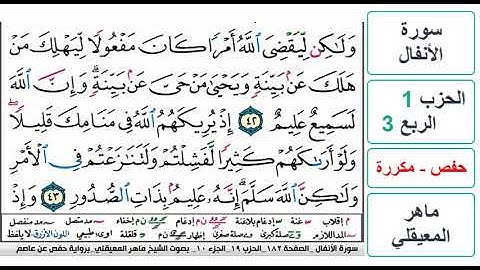 وَلَٰكِن لِّيَقْضِىَ ٱللَّهُ أَمْرًا كَانَ مَفْعُولًا لِّيَهْلِكَ مَنْ
هَلَكَ عَنۢ بَيِّنَةٍ وَيَحْيَىٰ مَنْ حَىَّ عَنۢ بَيِّنَةٍ ۗ وَإِنَّ ٱللَّهَ
لَسَمِيعٌ عَلِيمٌ ٤٢ إِذْ يُرِيكَهُمُ ٱللَّهُ فِى مَنَامِكَ قَلِيلًا ۖ
وَلَوْ أَرَىٰكَهُمْ كَثِيرًا لَّفَشِلْتُمْ وَلَتَنَٰزَعْتُمْ فِى ٱلْأَمْرِ
وَلَٰكِنَّ ٱللَّهَ سَلَّمَ ۗ إِنَّهُۥ عَلِيمٌۢ بِذَاتِ ٱلصُّدُورِ ٤٣ وَإِذْ
سورة الأنفال _ الصفحة ١٨٢ _ الحزب ١٩ _ الجزء ١٠ _ بصوت الشيخ ماهر المعيقلي _ برواية حفص عن عاصم
سورة
الأنفال
الحزب 1
الربع 3
حفص - مكررة
ماهر
المعيقلي